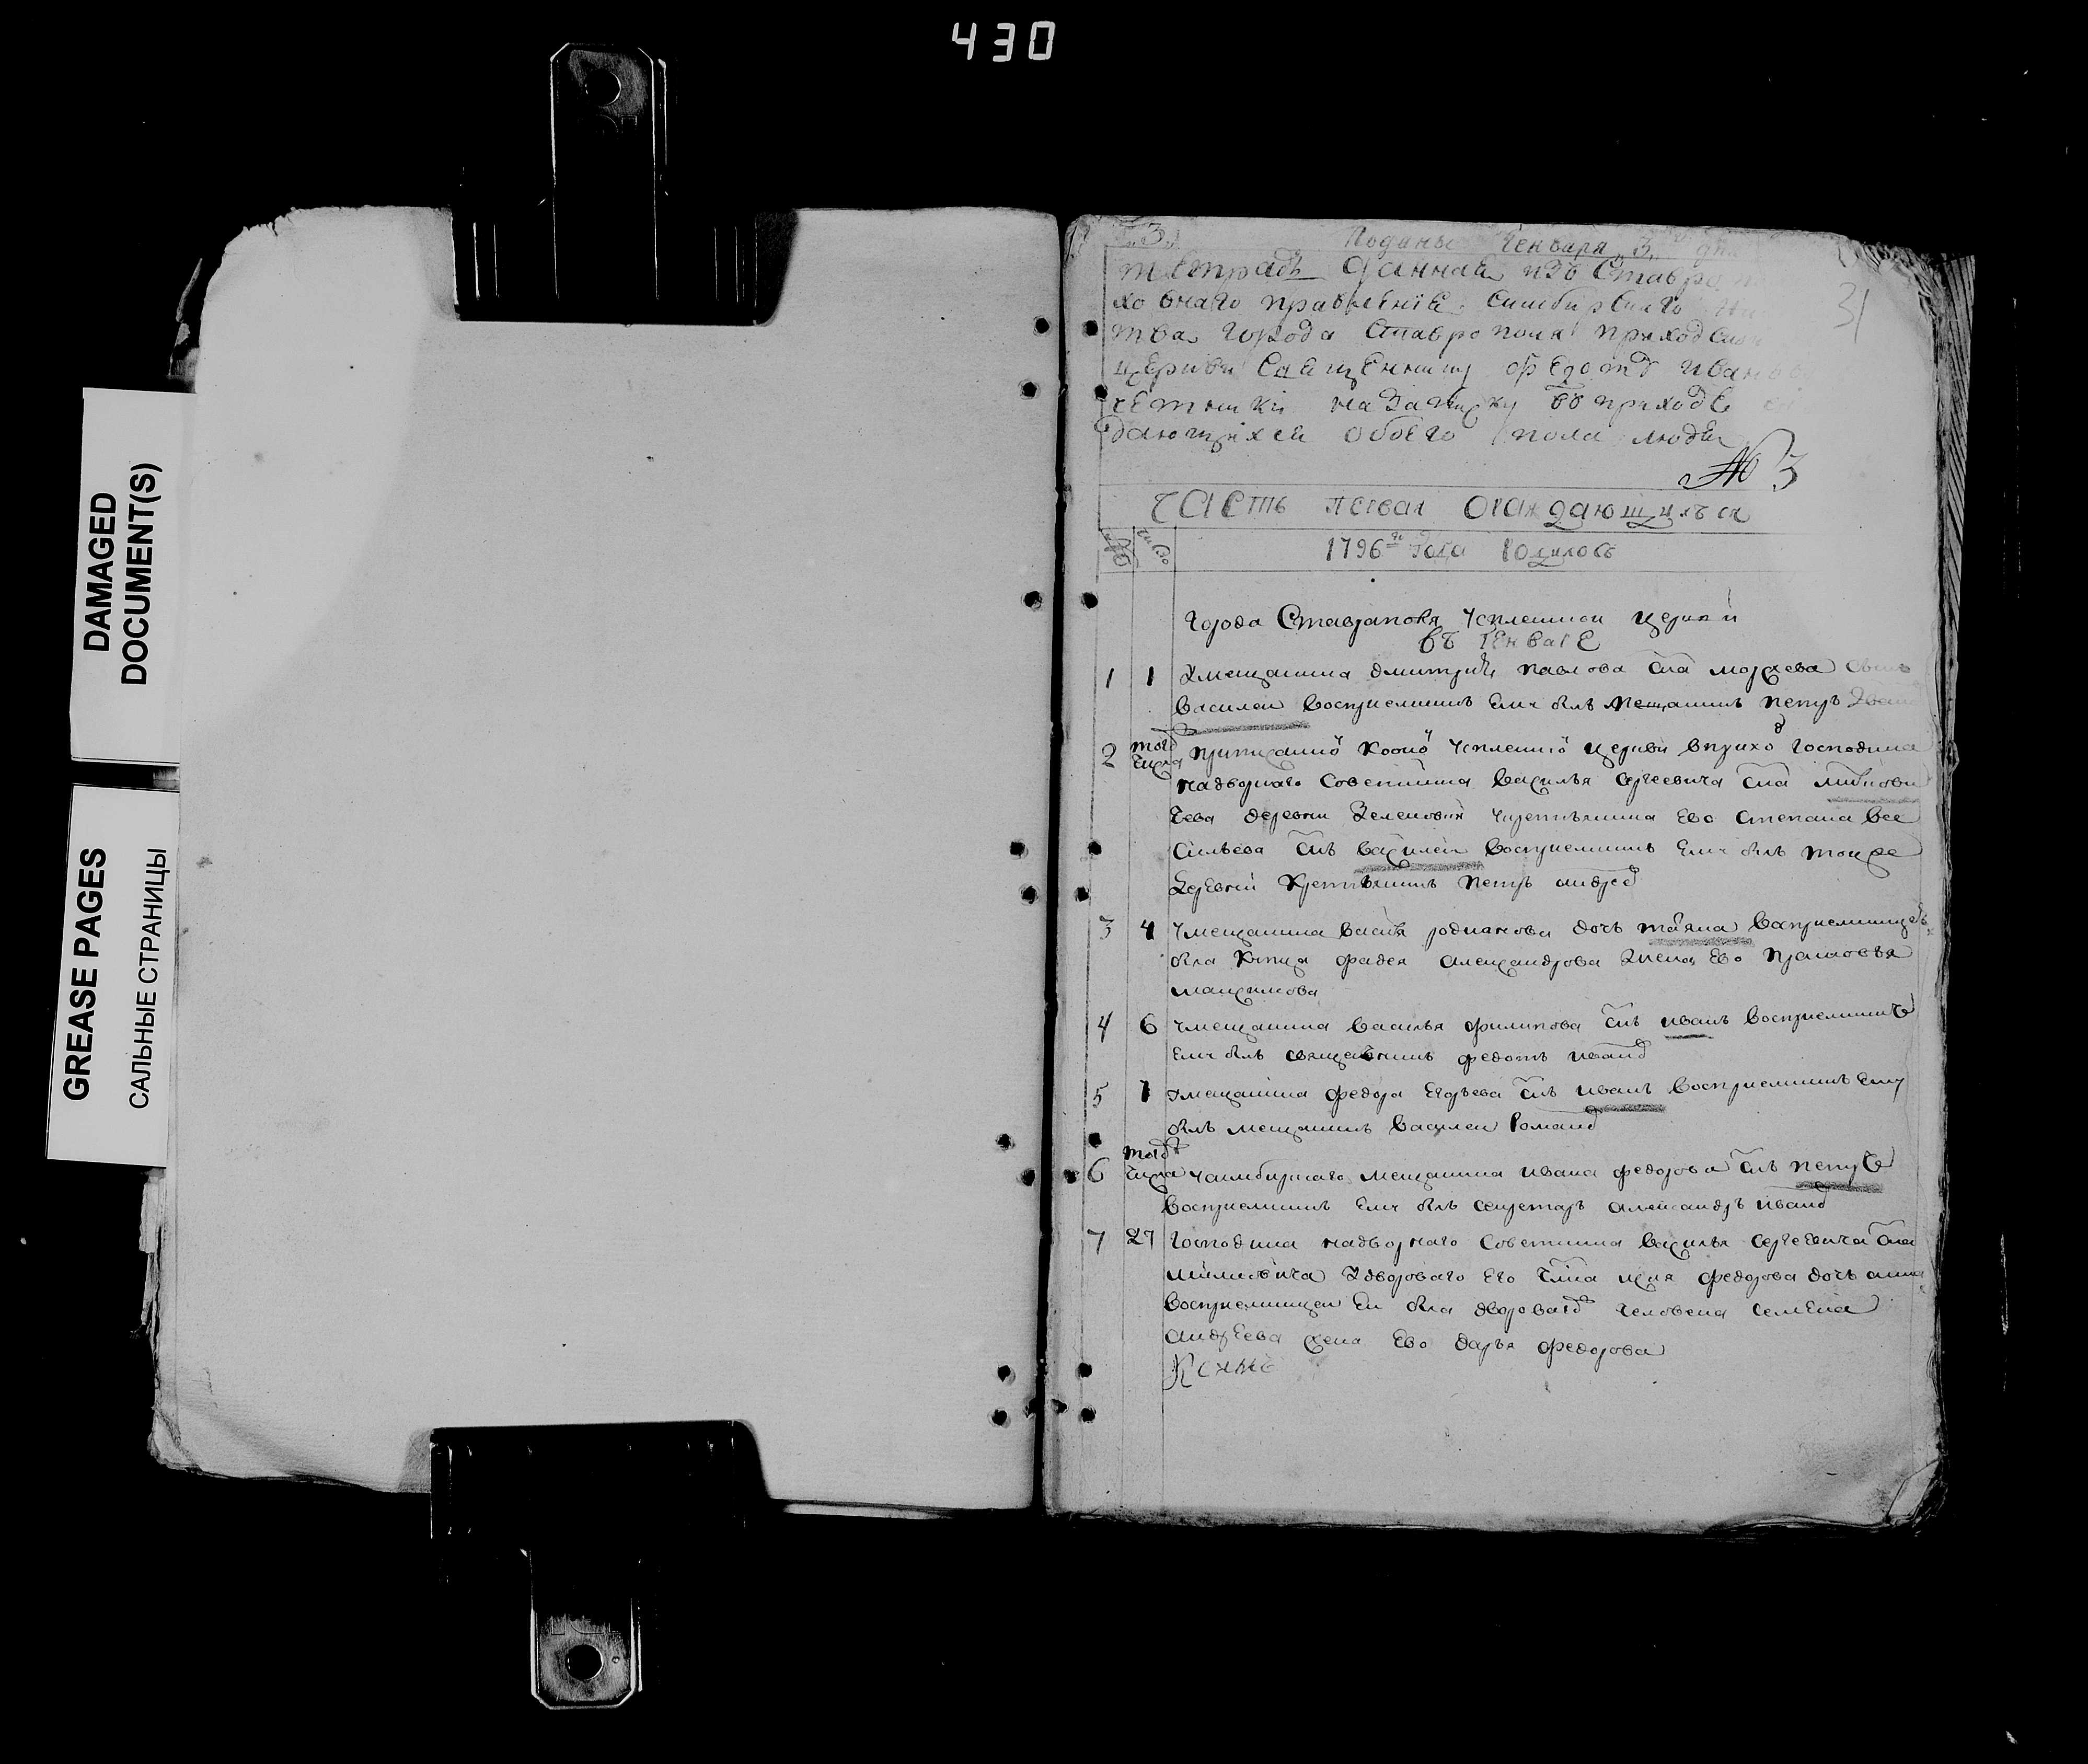 430
DAMAGED
DOCUMENT(S)
GREASE PAGES
САЛЬНЫЕ СТРАНИЦЫ
3
Поданы Генваря 3 дня
тетрадь данная изъ Ставро
ховнаго правления Симбирскаго
тва города Ставрополя приходской
церкви Священнику Федоту Ивано
на записку въ приходе
дающихся обоего пола людей
31
№ 3
часть первая о раждающихся
1796 года родилось
города Ставрополя Успенской церкви
въ генваре
1 1 У мещанина дмитрия павлова сна сынъ
василей восприемникъ ему былъ мещанинъ петръ Иван
2 того числа церкви в прихо господина
надворнаго советника василья сергеевича сна
чева деревни Зеленовки у крестьянина ево степана ва
сильева снъ василей восприемникъ ему былъ той же
деревни крестьянинъ петръ андре
3 4 У мещанина василья родионова дочь татьяна восприемницею
была купца фадея александрова жена ево прасковья
максимова
4 6 У мещанина василья филипова снъ иванъ восприемникъ
ему былъ священникъ федотъ иванов
5 7 У мещанина федора егорьева снъ иванъ восприемникъ ему
былъ мещанинъ василей романов
6 того числа У симбирскаго мещанина ивана федорова снъ петръ
восприемникъ ему былъ секретарь александръ иванов
7 27 Господина надворнаго советника василья сергеевича сна
у дворового его федорова дочь анна
восприемницей ей была двороваго человека семена
андреева жена ево дарья федорова